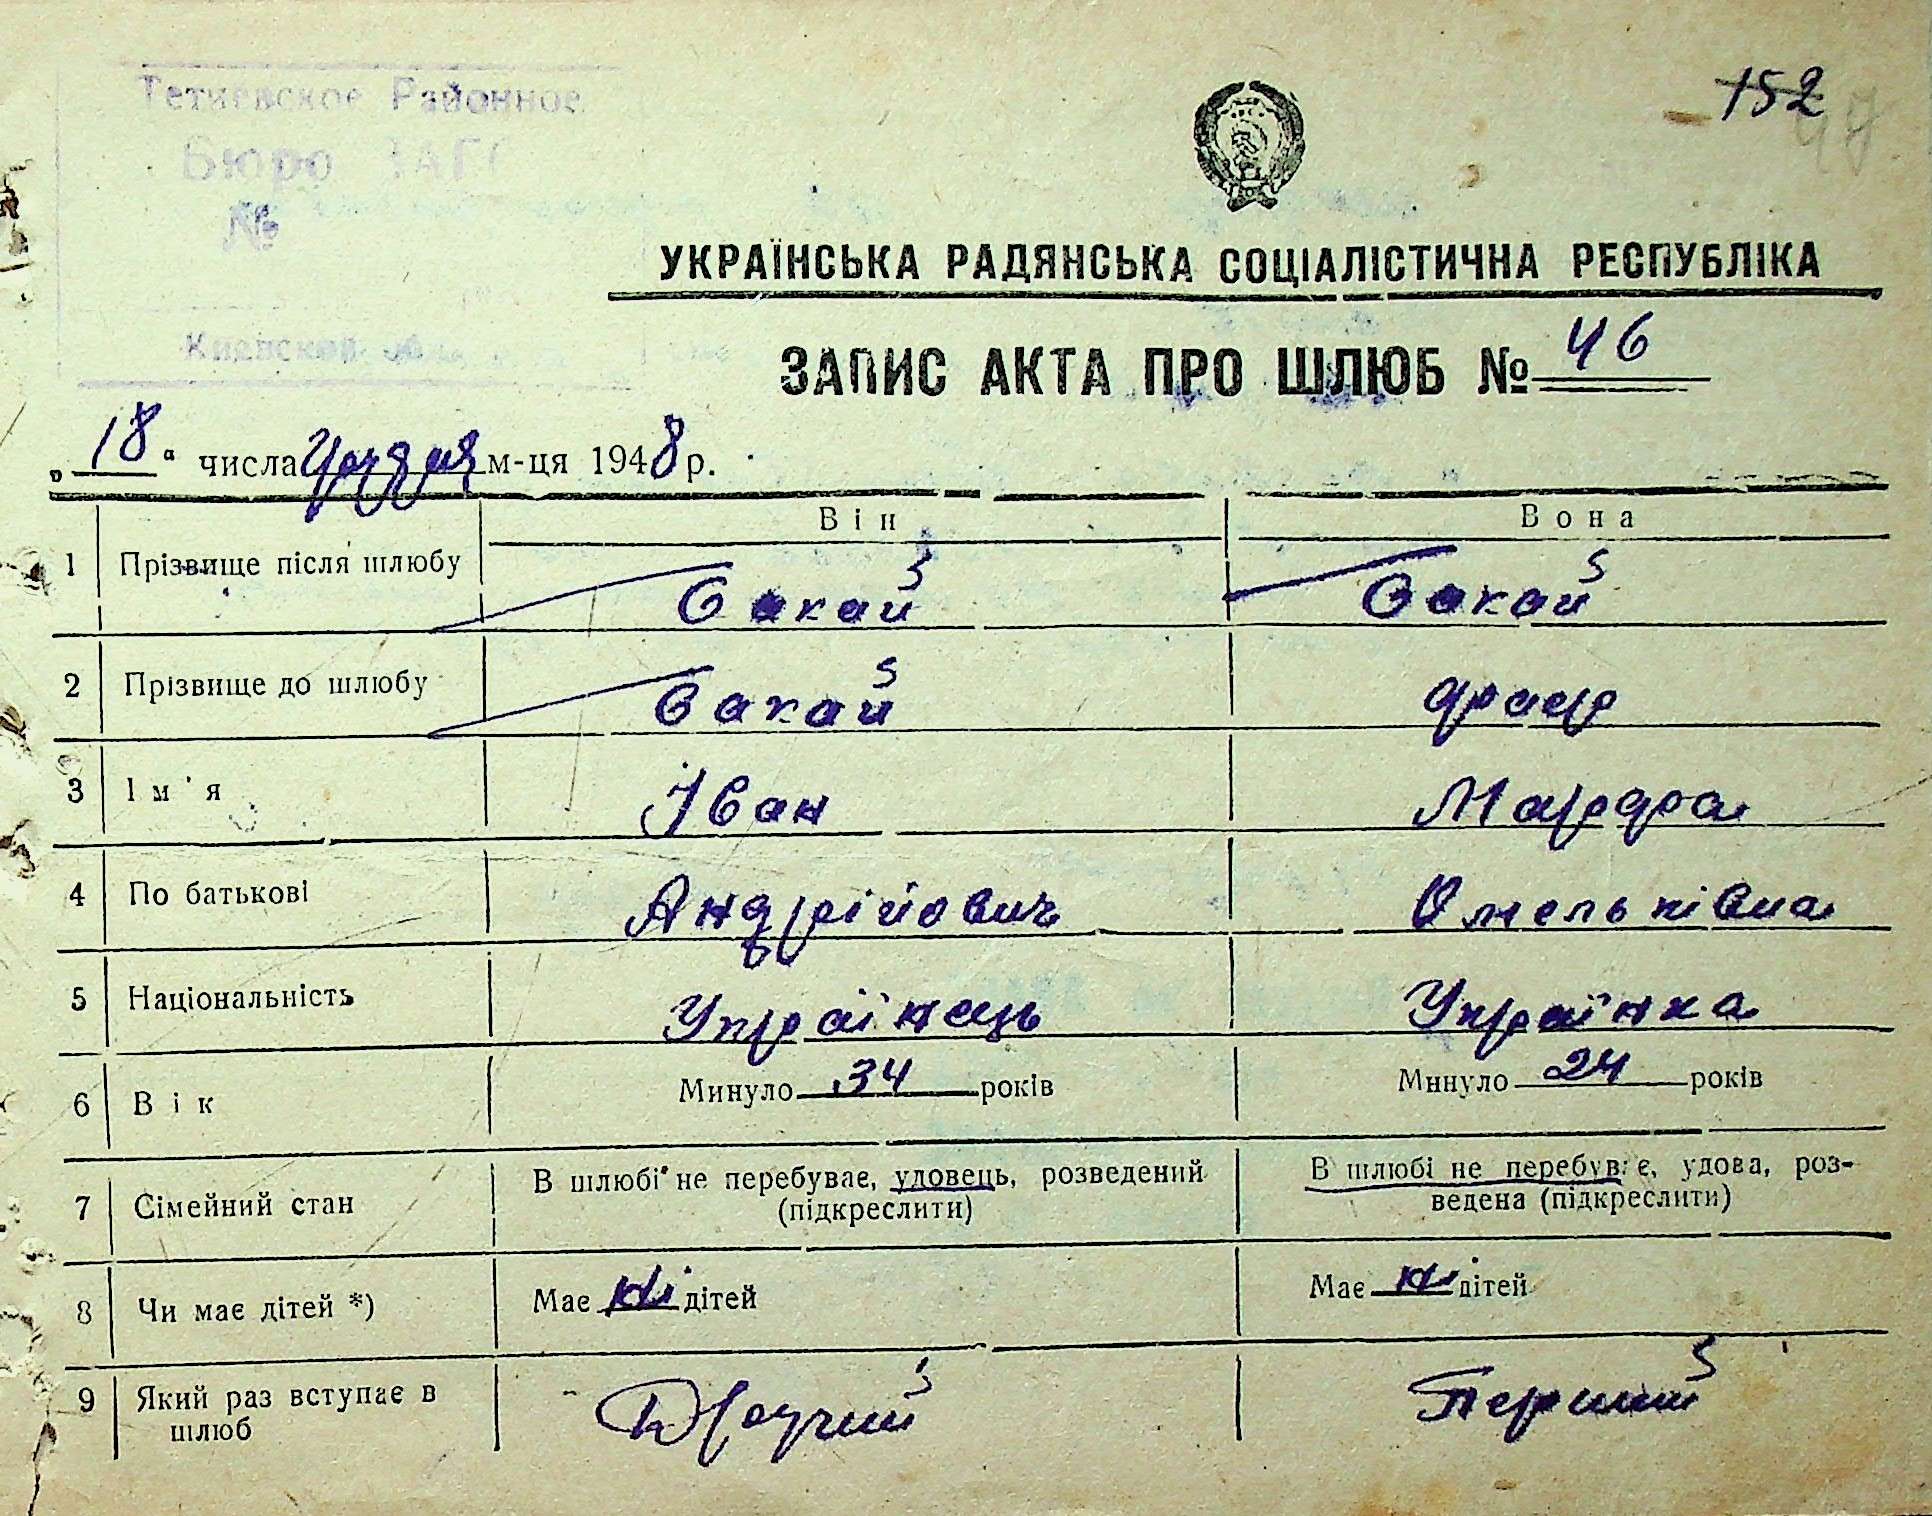 Тетиевское Районное
Бюро ЗАГС
№
Киевской
152
УКРАЇНСЬКА РАДЯНСЬКА СОЦІАЛІСТИЧНА РЕСПУБЛІКА
ЗАПИС АКТА ПРО ШЛЮБ № 46
„18“ числа Грудня м-ця 1948 р.
Він Вона
1 Прізвище після шлюбу Сакай Сакай
2 Прізвище до шлюбу Сакай
3 Ім'я Іван Марфа
4 По батькові Андрійович Омельківна
5 Національність Українець Українка
6 Вік Минуло 34 років Минуло 24 років
7 Сімейний стан В шлюбі не перебуває, удовець, розведений (підкреслити) В шлюбі не перебуває, удова, роз-
ведена (підкреслити)
8 Чи має дітей *) Має ні дітей Має ні дітей
9 Який раз вступає в шлюб Другий Перший